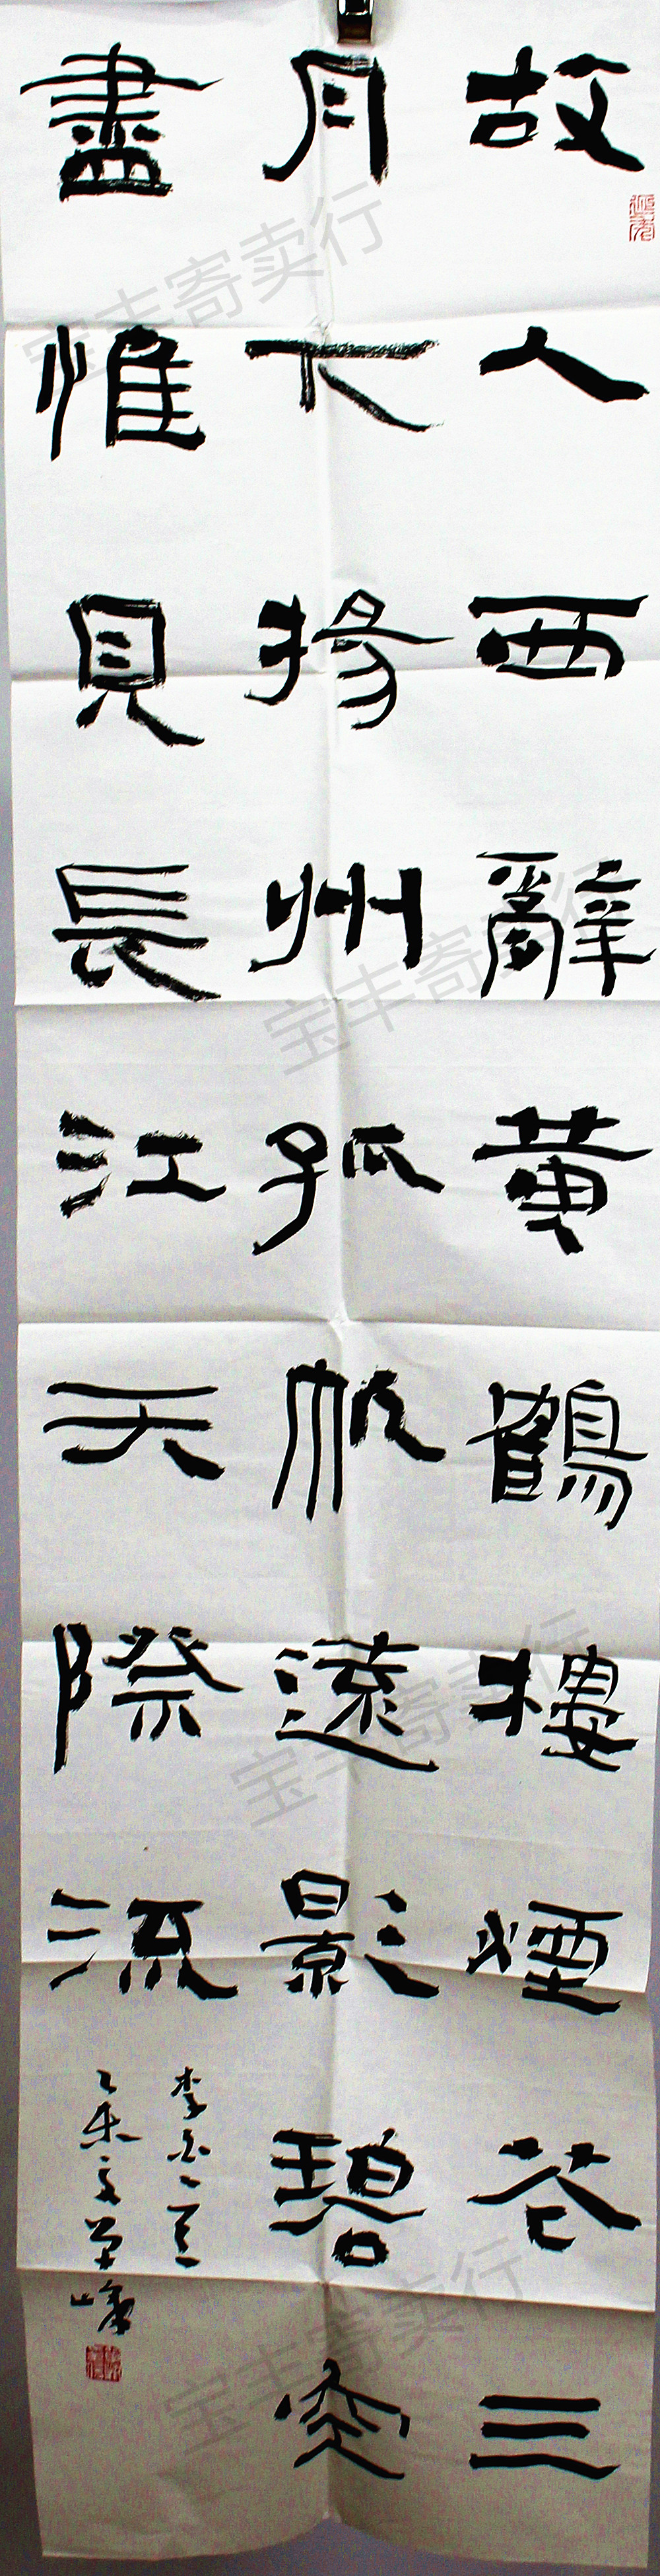 故人西辭黃鶴樓煙花三
月下揚州孤帆遠影碧空
盡惟見長江天際流
李白一首
乙未
宝丰寄卖行
宝丰寄卖行
宝丰寄卖行
宝丰寄卖行